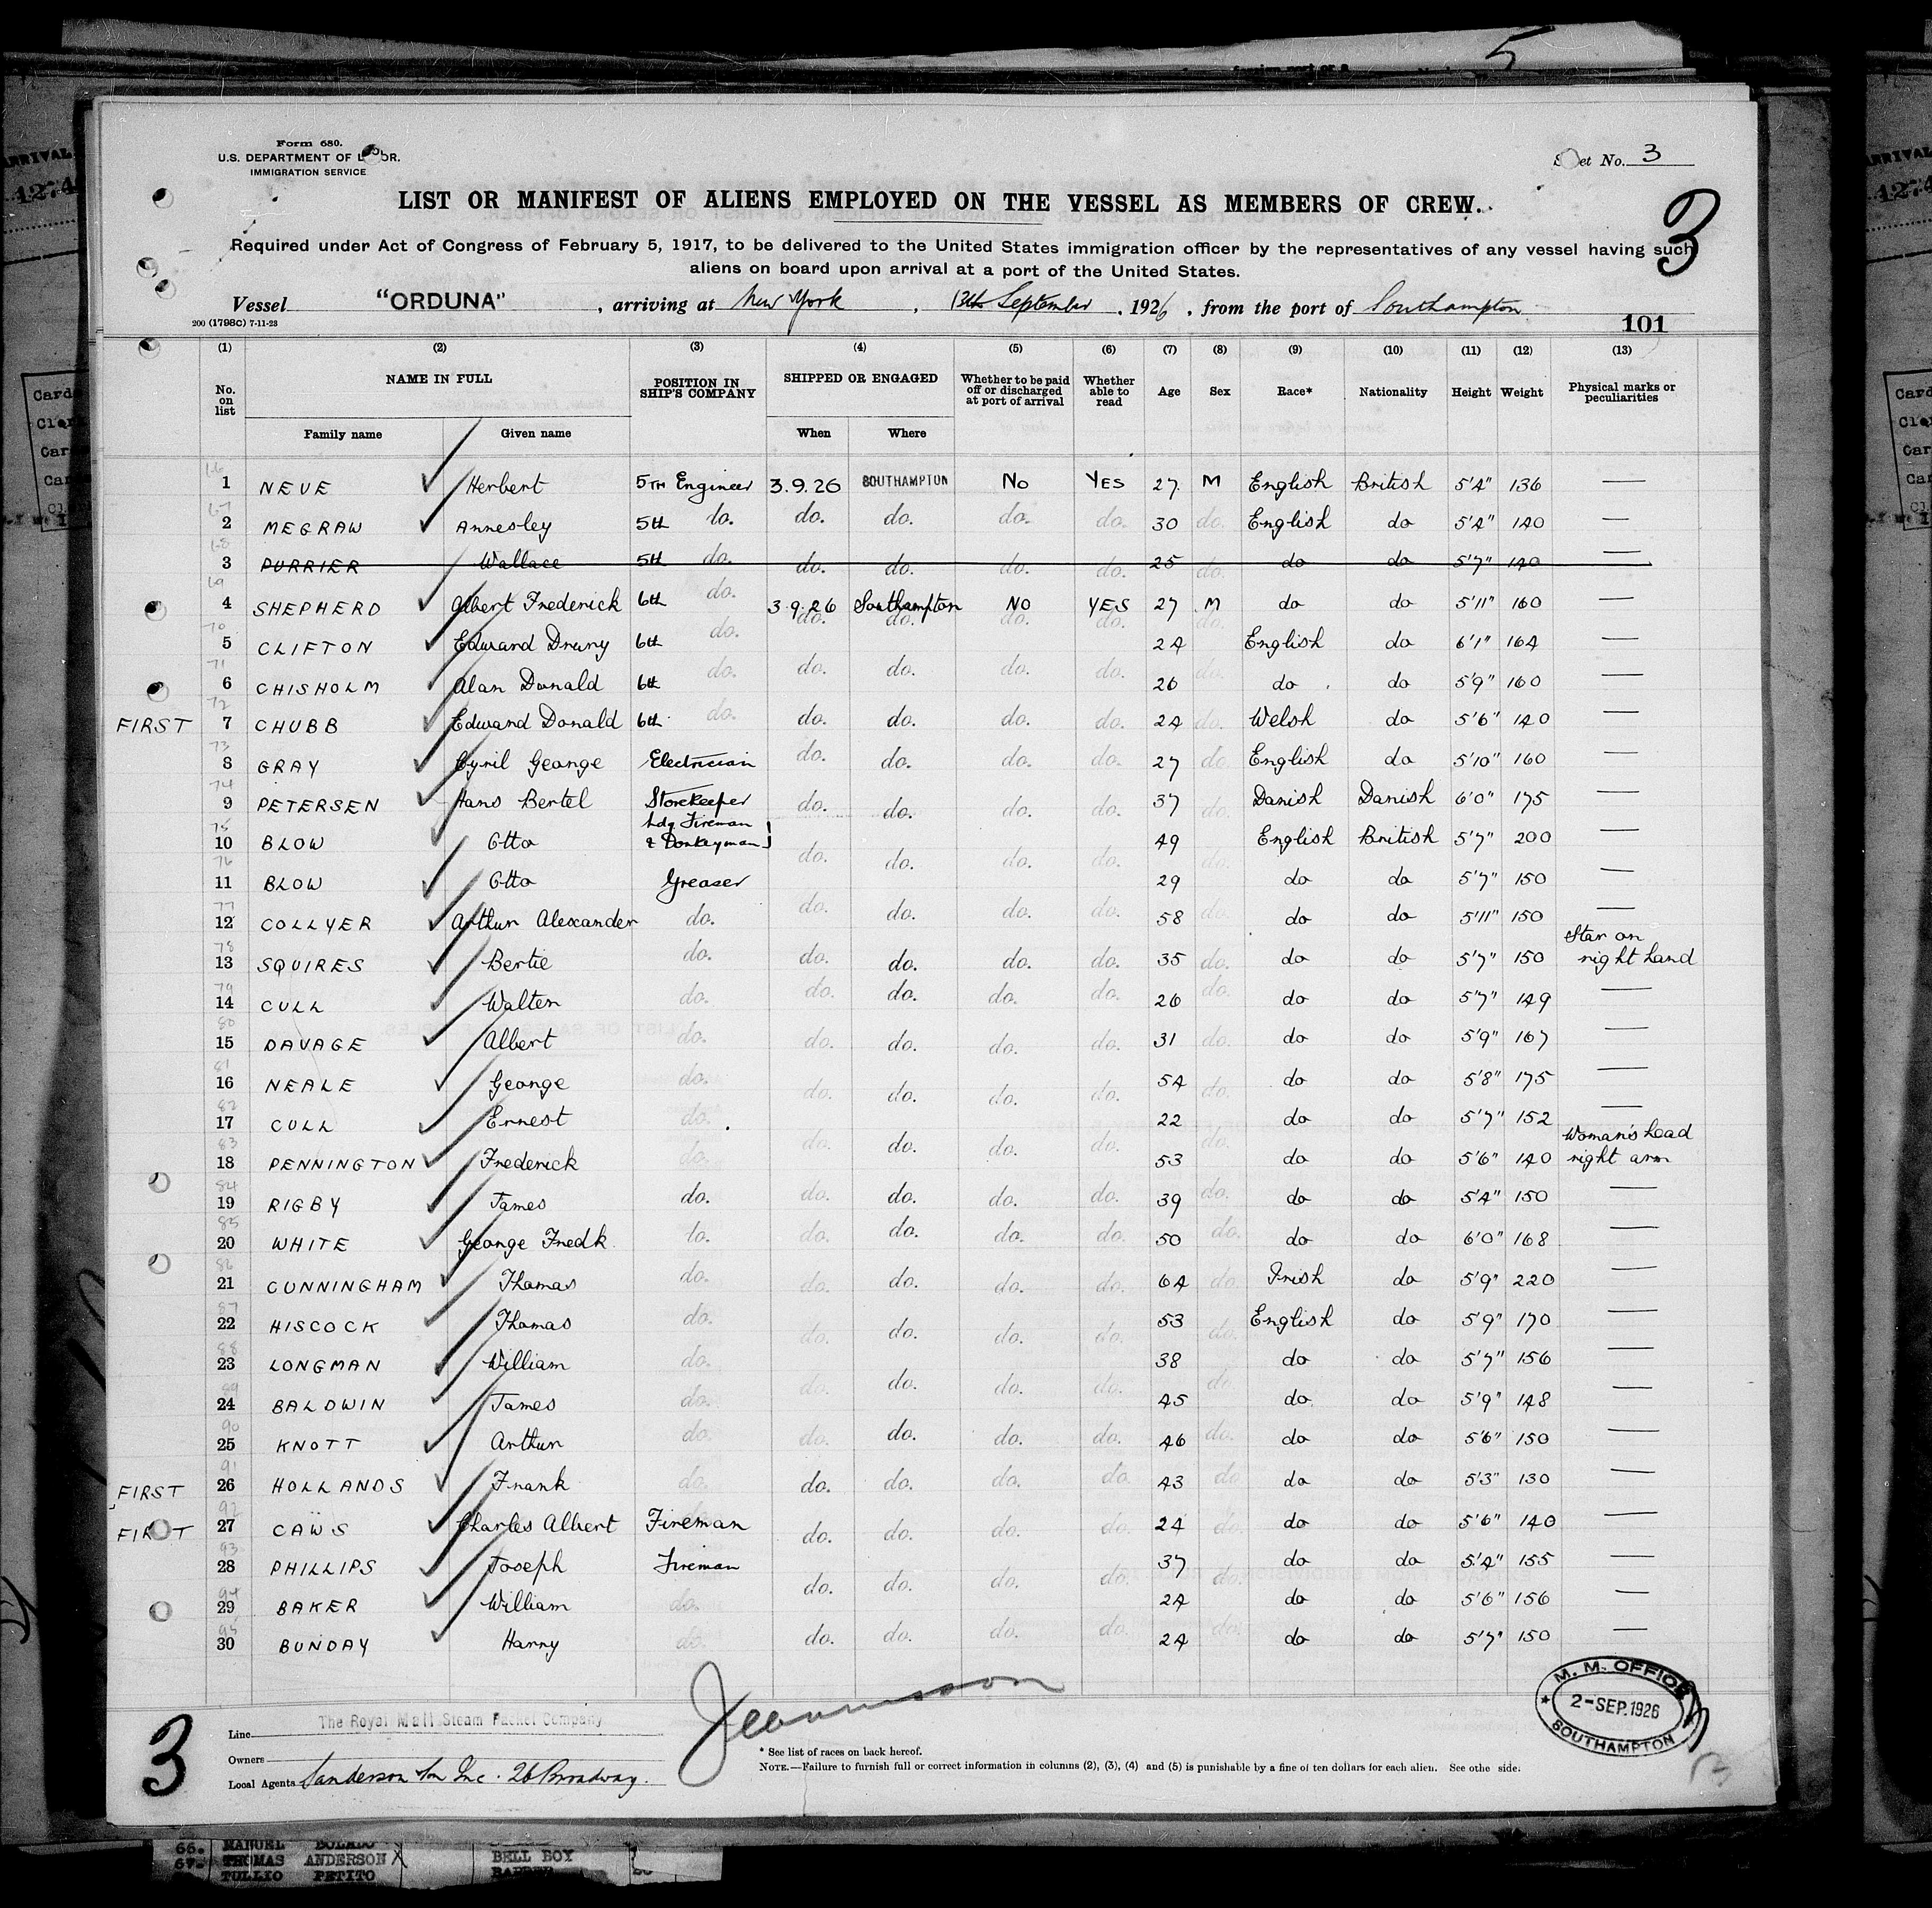 5
Form 680.
U.S. DEPARTMENT OF L BOR.
IMMIGRATION SERVICE
S et No. 3
LIST OR MANIFEST OF ALIENS EMPLOYED ON THE VESSEL AS MEMBERS OF CREW.
3
Required under Act of Congress of February 5, 1917, to be delivered to the United States immigration officer by the representatives of any vessel having such
aliens on board upon arrival at a port of the United States.
Vessel "ORDUNA", arriving at New York, 13th September, 1926, from the port of Southampton
200 (1798C) 7-11-23
101
(1) (2) (3) (4) (5) (6) (7) (8) (9) (10) (11) (12) (13)
No. on list NAME IN FULL POSITION IN SHIP'S COMPANY SHIPPED OR ENGAGED Whether to be paid off or discharged at port of arrival Whether able to read Age Sex Race* Nationality Height Weight Physical marks or peculiarities
Family name Given name When Where
66 1 NEVE Herbert 5TH Engineer 3.9.26 SOUTHAMPTON No YES 27 M English British 5'4" 136 —
67 2 MEGRAW Annesley 5th do. do. do. do. do. 30 do. English do 5'4" 140 —
68 3 PURRIER Wallace 5th do. do. do. do. do. 25 do. do do 5'7" 140 —
69 4 SHEPHERD Albert Frederick 6th do. 3.9.26 Southampton NO YES 27 M do do 5'11" 160 —
do. do. do. do. do.
70 5 CLIFTON Edward Drury 6th do. 24 English do 6'1" 164 —
71 6 CHISHOLM Alan Donald 6th do. do. do. do. do. 26 do. do do 5'9" 160 —
FIRST 72 7 CHUBB Edward Donald 6th do. do. do. do. do. 24 do. Welsh do 5'6" 140 —
73 8 GRAY Cyril George Electrician do. do. do. do. 27 do. English do 5'10" 160 —
74 9 PETERSEN Hans Bertel Storekeeper do. do. do. do. 37 do. Danish Danish 6'0" 175 —
75 10 BLOW Otto Ldg Fireman & Donkeyman 49 English British 5'7" 200 —
76 11 BLOW Otto Greaser do. do. do. do. 29 do. do do 5'7" 150 —
77 12 COLLYER Arthur Alexander do. do. do. do. do. 58 do. do do 5'11" 150 —
78 13 SQUIRES Bertie do. do. do. do. do. 35 do. do do 5'7" 150 Star on right hand
79 14 CULL Walter do. do. do. do. do. 26 do. do do 5'7" 149 —
80 15 DAVAGE Albert do. do. do. do. do. 31 do. do do 5'9" 167 —
81 16 NEALE George do. do. do. do. do. 54 do. do do 5'8" 175 —
82 17 CULL Ernest do. 22 do do 5'7" 152 —
83 18 PENNINGTON Frederick do. do. do. do. do. 53 do. do do 5'6" 140 Woman's head right arm
84 19 RIGBY James do. do. do. do. do. 39 do. do do 5'4" 150 —
85 20 WHITE George Fredk. do. do. do. do. do. 50 do. do do 6'0" 168 —
86 21 CUNNINGHAM Thomas do. do. do. do. do. 64 do. Irish do 5'9" 220 —
87 22 HISCOCK Thomas do. do. do. do. do. 53 do. English do 5'9" 170 —
88 23 LONGMAN William do. 38 do do 5'7" 156 —
89 24 BALDWIN James do. do. do. do. do. 45 do. do do 5'9" 148 —
90 25 KNOTT Arthur do. do. do. do. do. 46 do. do do 5'6" 150 —
FIRST 91 26 HOLLANDS Frank do. do. do. do. do. 43 do. do do 5'3" 130 —
FIRST 92 27 CAWS Charles Albert Fireman do. do. do. do. 24 do. do do 5'6" 140 —
93 28 PHILLIPS Joseph Fireman do. do. do. do. 37 do. do do 5'4" 155 —
94 29 BAKER William do. 24 do do 5'6" 156 —
95 30 BUNDAY Harry do. do. do. do. do. 24 do. do do 5'7" 150 —
M. M. OFFICE
2-SEP.1926
SOUTHAMPTON
3
Line The Royal Mail Steam Packet Company
Owners
Local Agents Sanderson & Son Inc. 26 Broadway.
* See list of races on back hereof.
NOTE.—Failure to furnish full or correct information in columns (2), (3), (4) and (5) is punishable by a fine of ten dollars for each alien. See othe side.
66. MANUEL BOLADO
67. THOMAS ANDERSON BELL BOY
TULLIO PETITO